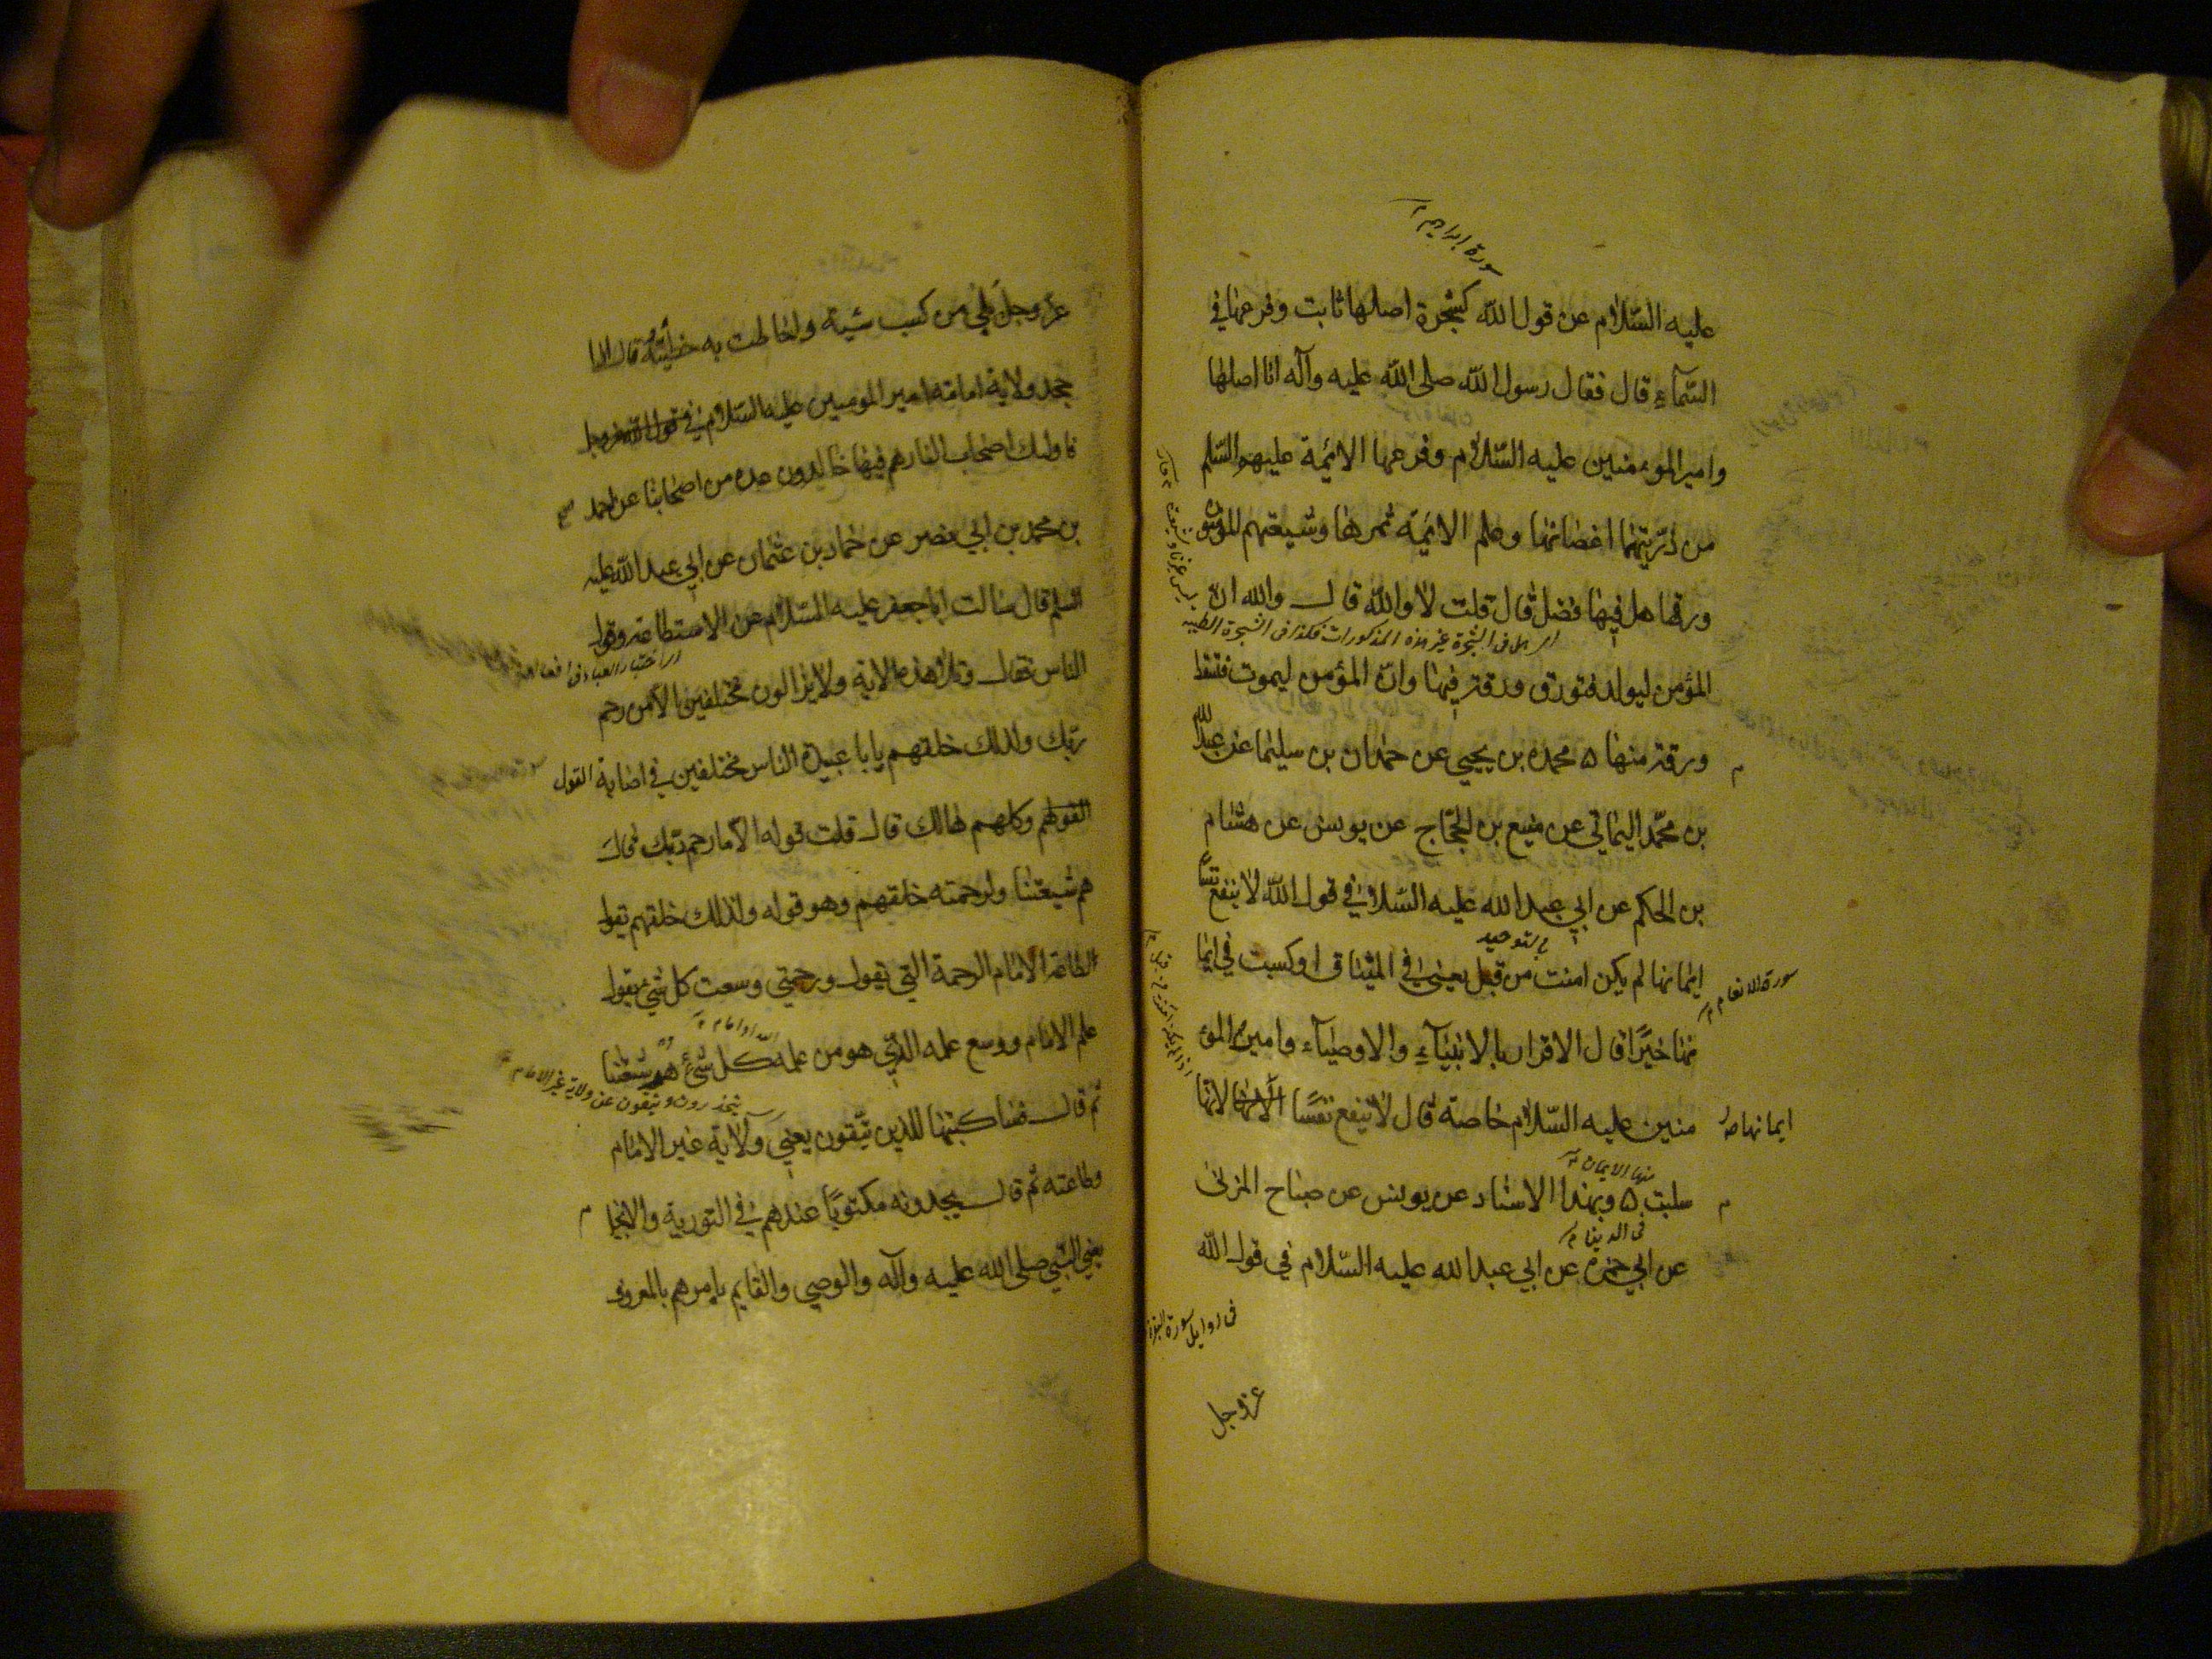 سورة ابراهيم
عليه السّلام عن قول الله كشجرة اصلها ثابت وفرعها في
السّمآء قال فقال رسول الله صلى الله عليه وآله انا اصلها
وامير الموءمنين عليه السّلام وفرعها الائمة عليهم السّلم
من ذرّيتهما اغصانها وعلم الائمة ثمرها وشيعتهم المؤمنون
ورقها هل فيها فضل قال قلت لا والله قال والله انّ
هل فى الشجرة غير هذه المذكورات فكذا فى الشجرة الطيبه
المؤمن ليولد فتورق ورقة فيها وانّ المؤمن ليموت فتسقط
ورقة منها ه محمد بن يحيى عن حمدان بن سليمان عن عبد الله
بن محمّد اليماني عن منيع بن الحجّاج عن يونس عن هشام
بن الحكم عن ابي عبد الله عليه السّلام في قول الله لا ينفع نفسًا
بالتوحيد
ايمانها لم يكن امنت من قبل يعنى في الميثاق او كسبت في ايما
سورة الانعام
نها خيرًا قال الاقرار بالانبيآء والاوصيآء وامير المؤ
منين عليه السّلام خاصة قال لا ينفع نفسًا الانها لانها
ايمانها
منها الايمان
سلبت ه وبهذا الاسناد عن يونس عن صباح المزنى
فى الدنيا
عن ابي حمزه عن ابي عبد الله عليه السّلام في قول الله
فى اوايل سورة البقرة
عزّ وجل
عزّ وجلّ بلى من كسب سيئة واحاطت به خطيئته قال اذا
جحد ولاية امامة امير المومنين عليه السّلام في قول الله عزوجل
فاولئك اصحاب النار هم فيها خالدون عده من اصحابنا عن احمد
بن محمد بن ابي نصر عن حماد بن عثمان عن ابي عبد الله عليه
السلم قال سالت ابا جعفر عليه السّلام عن الاستطاعة وقول
اى اختيار العباد فى افعالهم
الناس فقال وتلا هذه الاية ولا يزالون مختلفين الاّ من رحم
ربّك ولذلك خلقهم يا با عبيدة الناس مختلفين في اصابة القول
القولهم وكلهم هالك قال قلت قوله الاّ ما رحم ربّك قال
هم شيعتنا ولرحمته خلقهم وهو قوله ولذلك خلقهم يقول
الطاعة الامام الرحمة التي يقول ورحمتي وسعت كل شيء يقول
علم الامام ووسع علمه الذي هو من علمه كل شئ هم شيعتنا
يحذرون ويتقون عن ولاية غير الامام
ثم قال فساكتبها للذين يتّقون يعني ولاية غير الامام
وطاعته ثم قال يجدونه مكتوبًا عندهم في التورية والانجيل
يعني النّبي صلى الله عليه وآله والوصي والقايم يامرهم بالمعروف